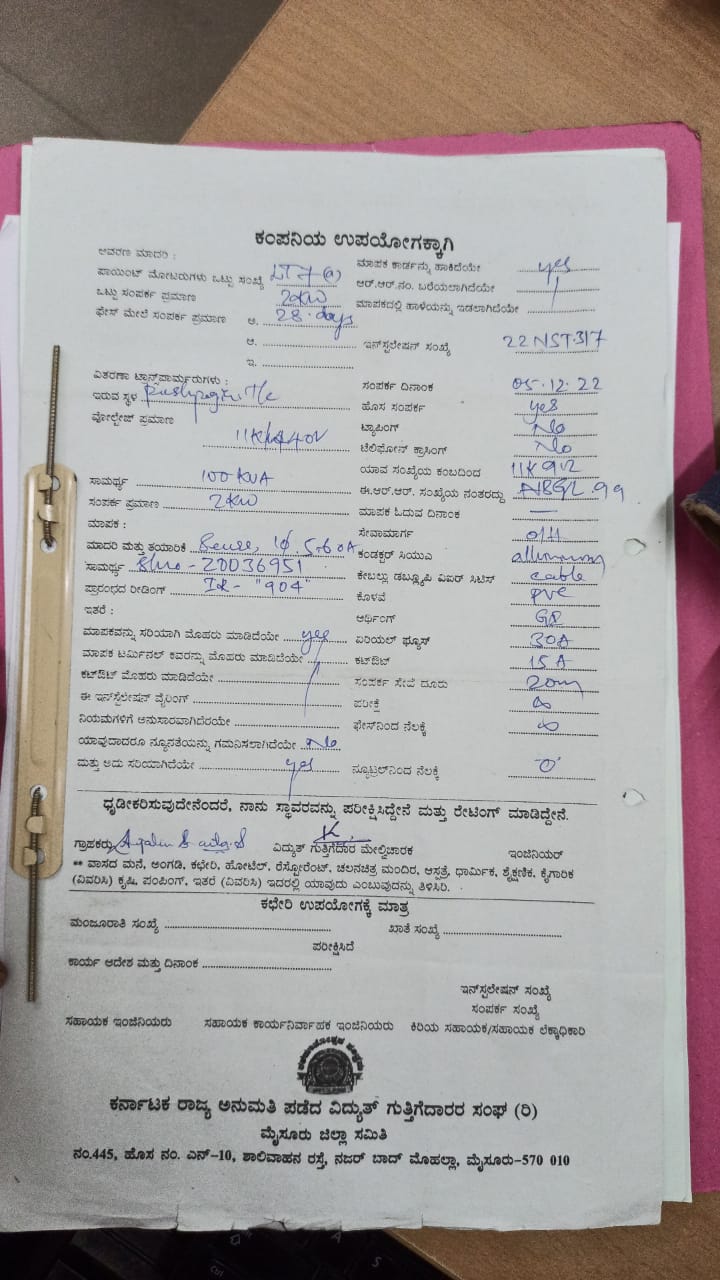 ಕಂಪನಿಯ ಉಪಯೋಗಕ್ಕಾಗಿ
ಆವರಣ ಮಾದರಿ : ಮಾಪಕ ಕಾರ್ಡನ್ನು ಹಾಕಿದೆಯೇ yes
ಪಾಯಿಂಟ್ ಮೋಟರುಗಳು ಒಟ್ಟು ಸಂಖ್ಯೆ LT7(a) ಆರ್.ಆರ್.ನಂ. ಬರೆಯಲಾಗಿದೆಯೇ
ಒಟ್ಟು ಸಂಪರ್ಕ ಪ್ರಮಾಣ 2KW ಮಾಪಕದಲ್ಲಿ ಹಾಳೆಯನ್ನು ಇಡಲಾಗಿದೆಯೇ
ಫೇಸ್ ಮೇಲೆ ಸಂಪರ್ಕ ಪ್ರಮಾಣ ಅ. 28 days
ಆ. ಇನ್‌ಸ್ಟಲೇಷನ್ ಸಂಖ್ಯೆ 22NST317
ಇ.
ವಿತರಣಾ ಟ್ರಾನ್ಸ್‌ಫಾರ್ಮರುಗಳು : ಸಂಪರ್ಕ ದಿನಾಂಕ 05.12.22
ಇರುವ ಸ್ಥಳ T/c ಹೊಸ ಸಂಪರ್ಕ yes
ವೋಲ್ಟೇಜ್ ಪ್ರಮಾಣ ಟ್ಯಾಪಿಂಗ್ No
ಟೆಲಿಫೋನ್ ಕ್ರಾಸಿಂಗ್ No
ಸಾಮರ್ಥ್ಯ 100 KVA ಯಾವ ಸಂಖ್ಯೆಯ ಕಂಬದಿಂದ
ಸಂಪರ್ಕ ಪ್ರಮಾಣ 2KW ಈ.ಆರ್.ಆರ್. ಸಂಖ್ಯೆಯ ನಂತರದ್ದು
ಮಾಪಕ : ಮಾಪಕ ಓದುವ ದಿನಾಂಕ —
ಮಾದರಿ ಮತ್ತು ತಯಾರಿಕೆ 5-60A ಸೇವಾಮಾರ್ಗ O/H
ಸಾಮರ್ಥ್ಯ - 20036951 ಕಂಡಕ್ಟರ್ ಸಿಯುಎ
ಪ್ರಾರಂಭದ ರೀಡಿಂಗ್ IR- "904" ಕೇಬಲ್ಲು ಡಬ್ಲ್ಯೂಪಿ ವಿಐರ್ ಸಿಟಿಸ್ cable
ಕೊಳವೆ PVC
ಇತರೆ : ಆರ್ಥಿಂಗ್
ಮಾಪಕವನ್ನು ಸರಿಯಾಗಿ ಮೊಹರು ಮಾಡಿದೆಯೇ yes ಏರಿಯಲ್ ಫ್ಯೂಸ್ 30A
ಮಾಪಕ ಟರ್ಮಿನಲ್ ಕವರನ್ನು ಮೊಹರು ಮಾಡಿದೆಯೇ ಕಟ್‌ಔಟ್ 15 A
ಕಟ್‌ಔಟ್ ಮೊಹರು ಮಾಡಿದೆಯೇ ಸಂಪರ್ಕ ಸೇವೆ ದೂರು 20m
ಈ ಇನ್‌ಸ್ಟಲೇಷನ್ ವೈರಿಂಗ್ ಪರೀಕ್ಷೆ ∞
ನಿಯಮಗಳಿಗೆ ಅನುಸಾರವಾಗಿದೆಯೇ ಫೇಸ್‌ನಿಂದ ನೆಲಕ್ಕೆ ∞
ಯಾವುದಾದರೂ ನ್ಯೂನತೆಯನ್ನು ಗಮನಿಸಲಾಗಿದೆಯೇ No
ಮತ್ತು ಅದು ಸರಿಯಾಗಿದೆಯೇ yes ನ್ಯೂಟ್ರಲ್‌ನಿಂದ ನೆಲಕ್ಕೆ 'O'
ಧೃಡೀಕರಿಸುವುದೇನೆಂದರೆ, ನಾನು ಸ್ಥಾವರವನ್ನು ಪರೀಕ್ಷಿಸಿದ್ದೇನೆ ಮತ್ತು ರೇಟಿಂಗ್ ಮಾಡಿದ್ದೇನೆ.
ಗ್ರಾಹಕರು ವಿದ್ಯುತ್ ಗುತ್ತಿಗೆದಾರ ಮೇಲ್ವಿಚಾರಕ ಇಂಜಿನಿಯರ್
** ವಾಸದ ಮನೆ, ಅಂಗಡಿ, ಕಛೇರಿ, ಹೋಟೆಲ್, ರೆಸ್ಟೋರೆಂಟ್, ಚಲನಚಿತ್ರ ಮಂದಿರ, ಆಸ್ಪತ್ರೆ, ಧಾರ್ಮಿಕ, ಶೈಕ್ಷಣಿಕ, ಕೈಗಾರಿಕ
(ವಿವರಿಸಿ) ಕೃಷಿ, ಪಂಪಿಂಗ್, ಇತರೆ (ವಿವರಿಸಿ) ಇದರಲ್ಲಿ ಯಾವುದು ಎಂಬುವುದನ್ನು ತಿಳಿಸಿರಿ.
ಕಛೇರಿ ಉಪಯೋಗಕ್ಕೆ ಮಾತ್ರ
ಮಂಜೂರಾತಿ ಸಂಖ್ಯೆ ಖಾತೆ ಸಂಖ್ಯೆ
ಪರೀಕ್ಷಿಸಿದೆ
ಕಾರ್ಯ ಆದೇಶ ಮತ್ತು ದಿನಾಂಕ
ಇನ್‌ಸ್ಟಲೇಷನ್ ಸಂಖ್ಯೆ
ಸಂಪರ್ಕ ಸಂಖ್ಯೆ
ಸಹಾಯಕ ಇಂಜಿನಿಯರು ಸಹಾಯಕ ಕಾರ್ಯನಿರ್ವಾಹಕ ಇಂಜಿನಿಯರು ಕಿರಿಯ ಸಹಾಯಕ/ಸಹಾಯಕ ಲೆಕ್ಕಾಧಿಕಾರಿ
ಕರ್ನಾಟಕ ರಾಜ್ಯ ಅನುಮತಿ ಪಡೆದ ವಿದ್ಯುತ್ ಗುತ್ತಿಗೆದಾರರ ಸಂಘ (ರಿ)
ಮೈಸೂರು ಜಿಲ್ಲಾ ಸಮಿತಿ
ನಂ.445, ಹೊಸ ನಂ. ಎನ್-10, ಶಾಲಿವಾಹನ ರಸ್ತೆ, ನಜರ್ ಬಾದ್ ಮೊಹಲ್ಲಾ, ಮೈಸೂರು-570 010